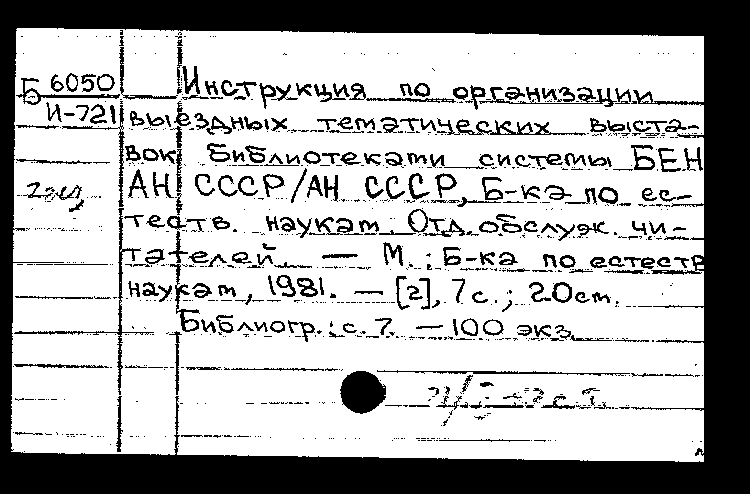 Б 6050 Инструкция по организации
И-721 выездных тематических выста-
вок библиотеками системы БЕН
АН СССР/АН СССР, Б-ка по ес-
2 экз
теств. наукам. Отд. обслуж. чи-
тателей. — М.: Б-ка по естеств
наукам, 1981. — [2], 7 с.; 20 см.
Библиогр.: с. 7. — 100 экз.